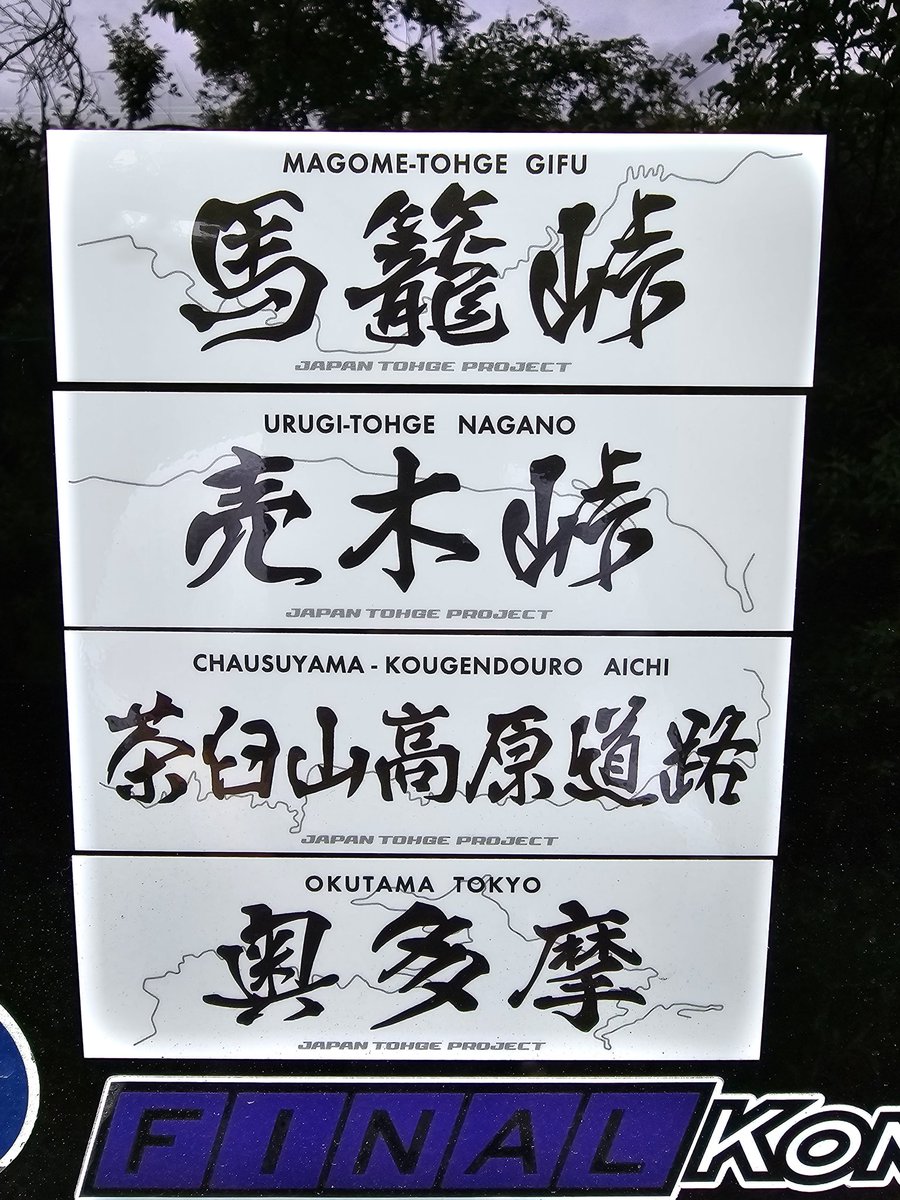 MAGOME-TOHGE GIFU
馬籠峠
JAPAN TOHGE PROJECT
URUGI-TOHGE NAGANO
売木峠
JAPAN TOHGE PROJECT
CHAUSUYAMA - KOUGENDOURO AICHI
茶臼山高原道路
JAPAN TOHGE PROJECT
OKUTAMA TOKYO
奥多摩
JAPAN TOHGE PROJECT
FINAL KON